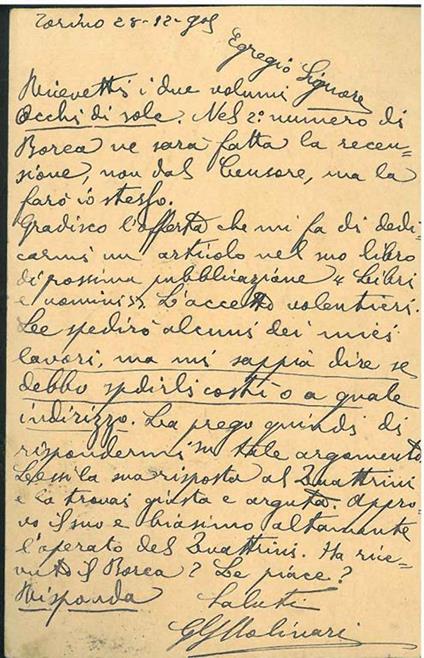 Torino 28-12-905
Egregio Signore
Ricevetti i due volumi
Occhi di sole. Nel 2º numero di
Borea ne sarà fatta la recen-
sione, non dal Censore, ma la
farò io stesso.
Gradisco l'offerta che mi fa di dedi-
carmi un articolo nel suo libro
di prossima pubblicazione "Libri
e uomini". L'accetto volentieri.
Le spedirò alcuni dei miei
lavori, ma mi sappia dire se
debbo spedirli costì o a quale
indirizzo. La prego quindi di
rispondermi su tale argomento.
Lessi la sua risposta al Quattrini
e la trovai giusta e arguta. Appro-
vo il suo e biasimo altamente
l'operato del Quattrini. Ha rice-
vuto il Borea? Le piace?
Risponda
Saluti
Molinari